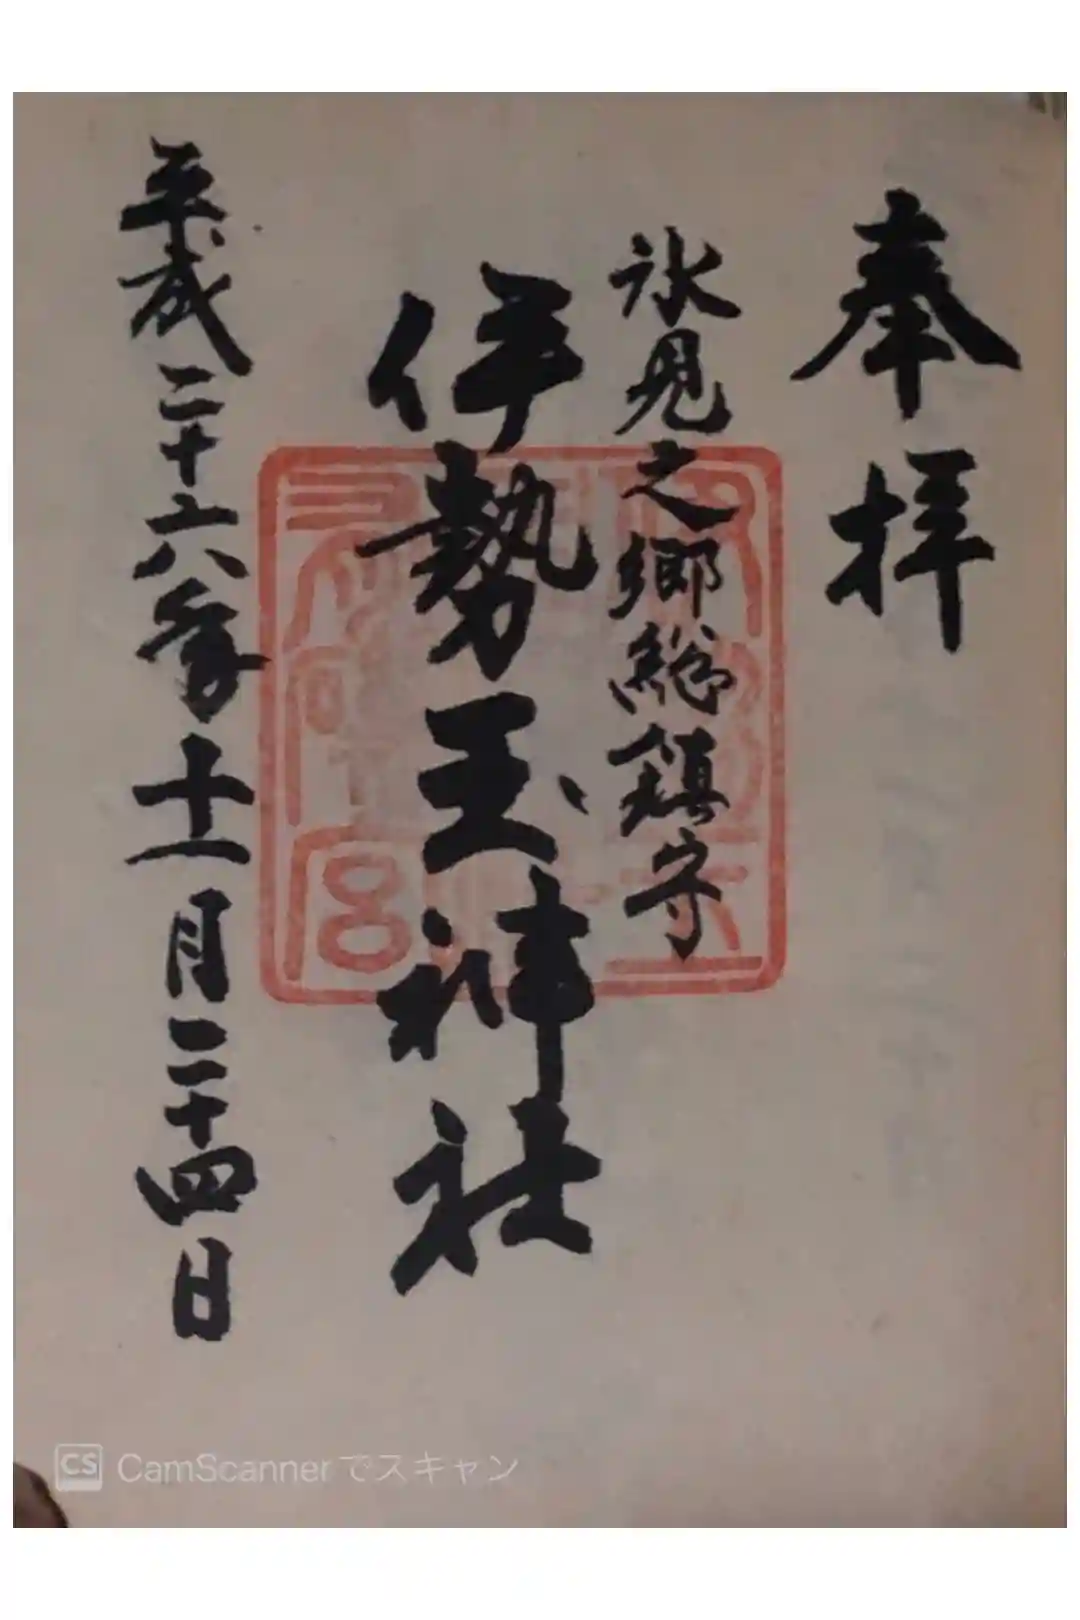 奉拝
氷見之郷総鎮守
伊勢玉神社
平成二十六年十一月二十四日
CS CamScannerでスキャン